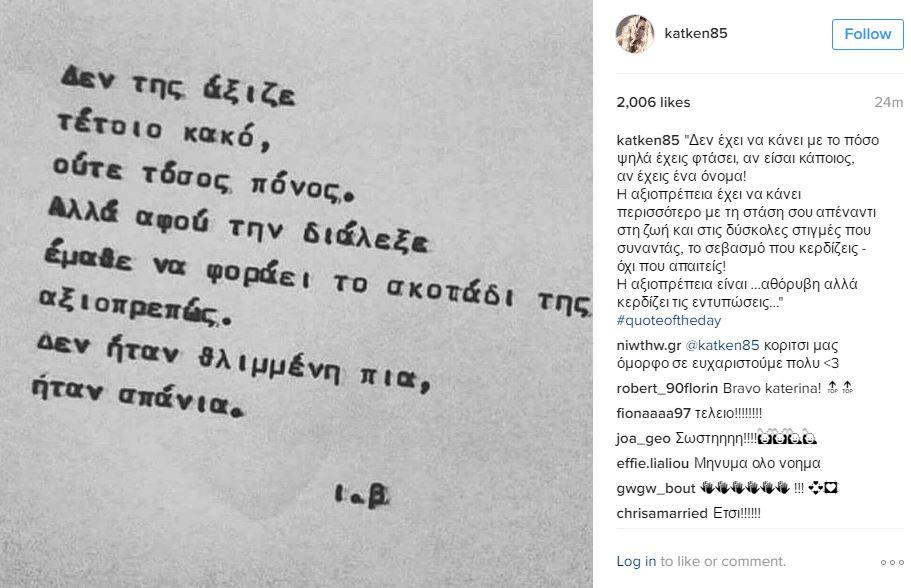 Δεν της άξιζε
τέτοιο κακό,
ούτε τόσος πόνος.
Αλλά αφού την διάλεξε
έμαθε να φοράει το σκοτάδι της
αξιοπρεπώς.
Δεν ήταν θλιμμένη πια,
ήταν σπάνια.
ι.β
katken85
Follow
2,006 likes
24m
katken85 "Δεν έχει να κάνει με το πόσο
ψηλά έχεις φτάσει, αν είσαι κάποιος,
αν έχεις ένα όνομα!
Η αξιοπρέπεια έχει να κάνει
περισσότερο με τη στάση σου απέναντι
στη ζωή και στις δύσκολες στιγμές που
συναντάς, το σεβασμό που κερδίζεις -
όχι που απαιτείς!
Η αξιοπρέπεια είναι ...αθόρυβη αλλά
κερδίζει τις εντυπώσεις..."
#quoteoftheday
niwthw.gr @katken85 κοριτσι μας
όμορφο σε ευχαριστούμε πολυ <3
robert_90florin Bravo katerina! 🔝🔝
fionaaaa97 τελειο!!!!!!!!
joa_geo Σωστηηηη!!!!
effie.lialiou Μηνυμα ολο νοημα
gwgw_bout 👋👋👋👋👋👋 !!!
chrisamarried Ετσι!!!!!!
Log in to like or comment.